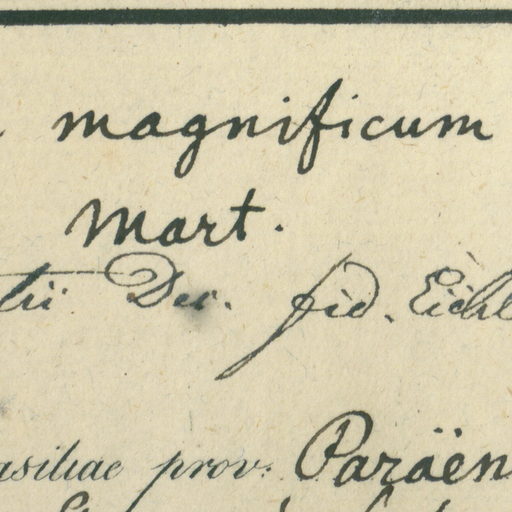 magnificum
Mart.
Dec. fid. Eichl
asiliae prov. Paraën